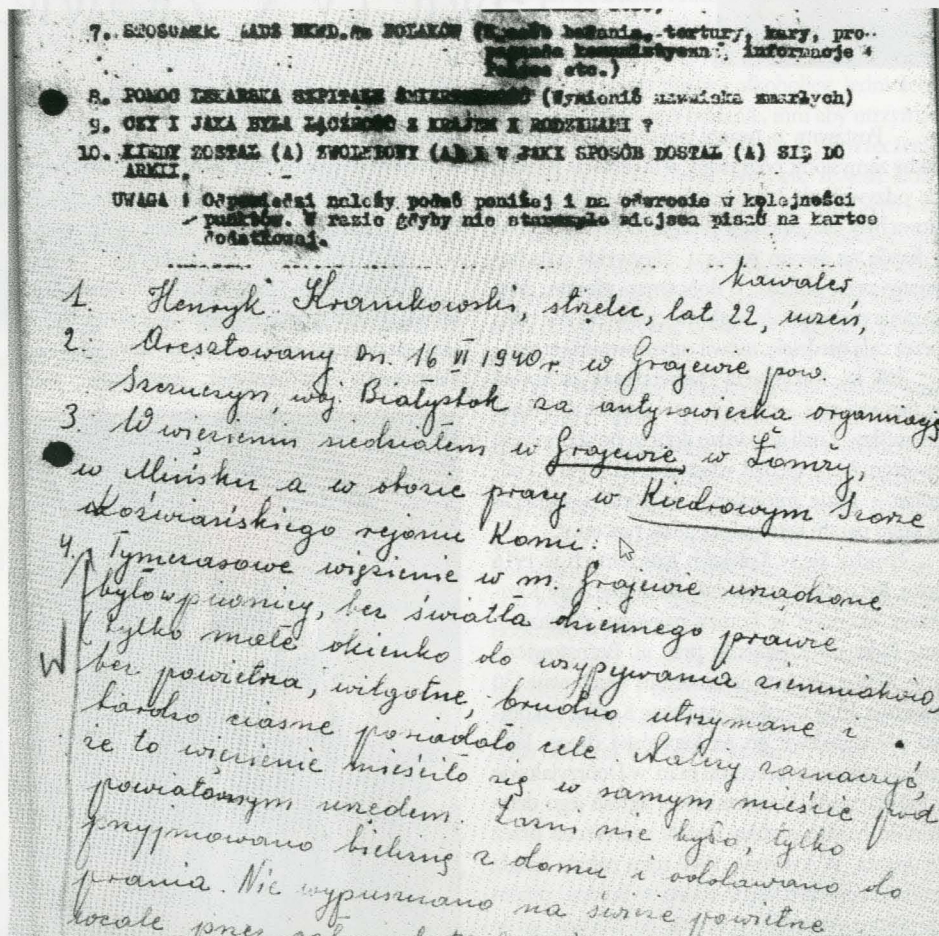 7. STOSUNEK WŁADZ NKWD. DO POLAKÓW (Sposób badania, tortury, kary, pro-
paganda komunistyczna, informacje o
Polsce etc.)
8. POMOC LEKARSKA SZPITALE ŚMIERTELNOŚĆ (Wymienić nazwiska zmarłych)
9. CZY I JAKA BYŁA ŁĄCZNOŚĆ Z KRAJEM I RODZINAMI ?
10. KIEDY ZOSTAŁ (A) ZWOLNIONY (A) I W JAKI SPOSÓB DOSTAŁ (A) SIĘ DO
ARMII.
UWAGA : Odpowiedzi należy podać poniżej i na odwrocie w kolejności
punktów. W razie gdyby nie starczyło miejsca pisać na kartce
dodatkowej.
kawaler
1. Henryk Kramkowski, strzelec, lat 22, uczeń,
2. Aresztowany dn. 16 VI 1940 r. w Grajewie pow.
Szczuczyn, woj. Białystok za antysowiecka organizację
3. W więzieniu siedziałem w Grajewie, w Łomży,
w Mińsku a w obozie pracy w Kiedrowym Szorze
Kożwiańskiego rejonu Komi.
4. Tymczasowe więzienie w m. Grajewie urządzone
było w piwnicy, bez światła dziennego prawie
(tylko małe okienko do wsypywania ziemniaków,
bez powietrza, wilgotne, brudno utrzymane i
bardzo ciasne posiadało cele. Należy zaznaczyć,
że to więzienie mieściło się w samym mieście pod
powiatowym urzędem. Łaźni nie było, tylko
przyjmowano bieliznę z domu i oddawano do
prania. Nie wypuszczano na świeże powietrze
wcale przez